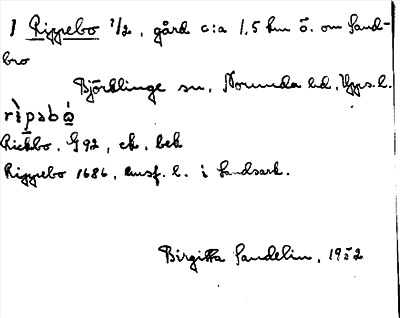 1 Rippebo 1/2, gård c:a 1,5 km ö. om Sand-
bro
Björklinge sn, Norunda hd, Upps. l.
rìpəbὼ
Rickbo, G 92, ek, bek
Rippebo 1686, Ransf. l. i Landsark.
Birgitta Sandelin, 1952